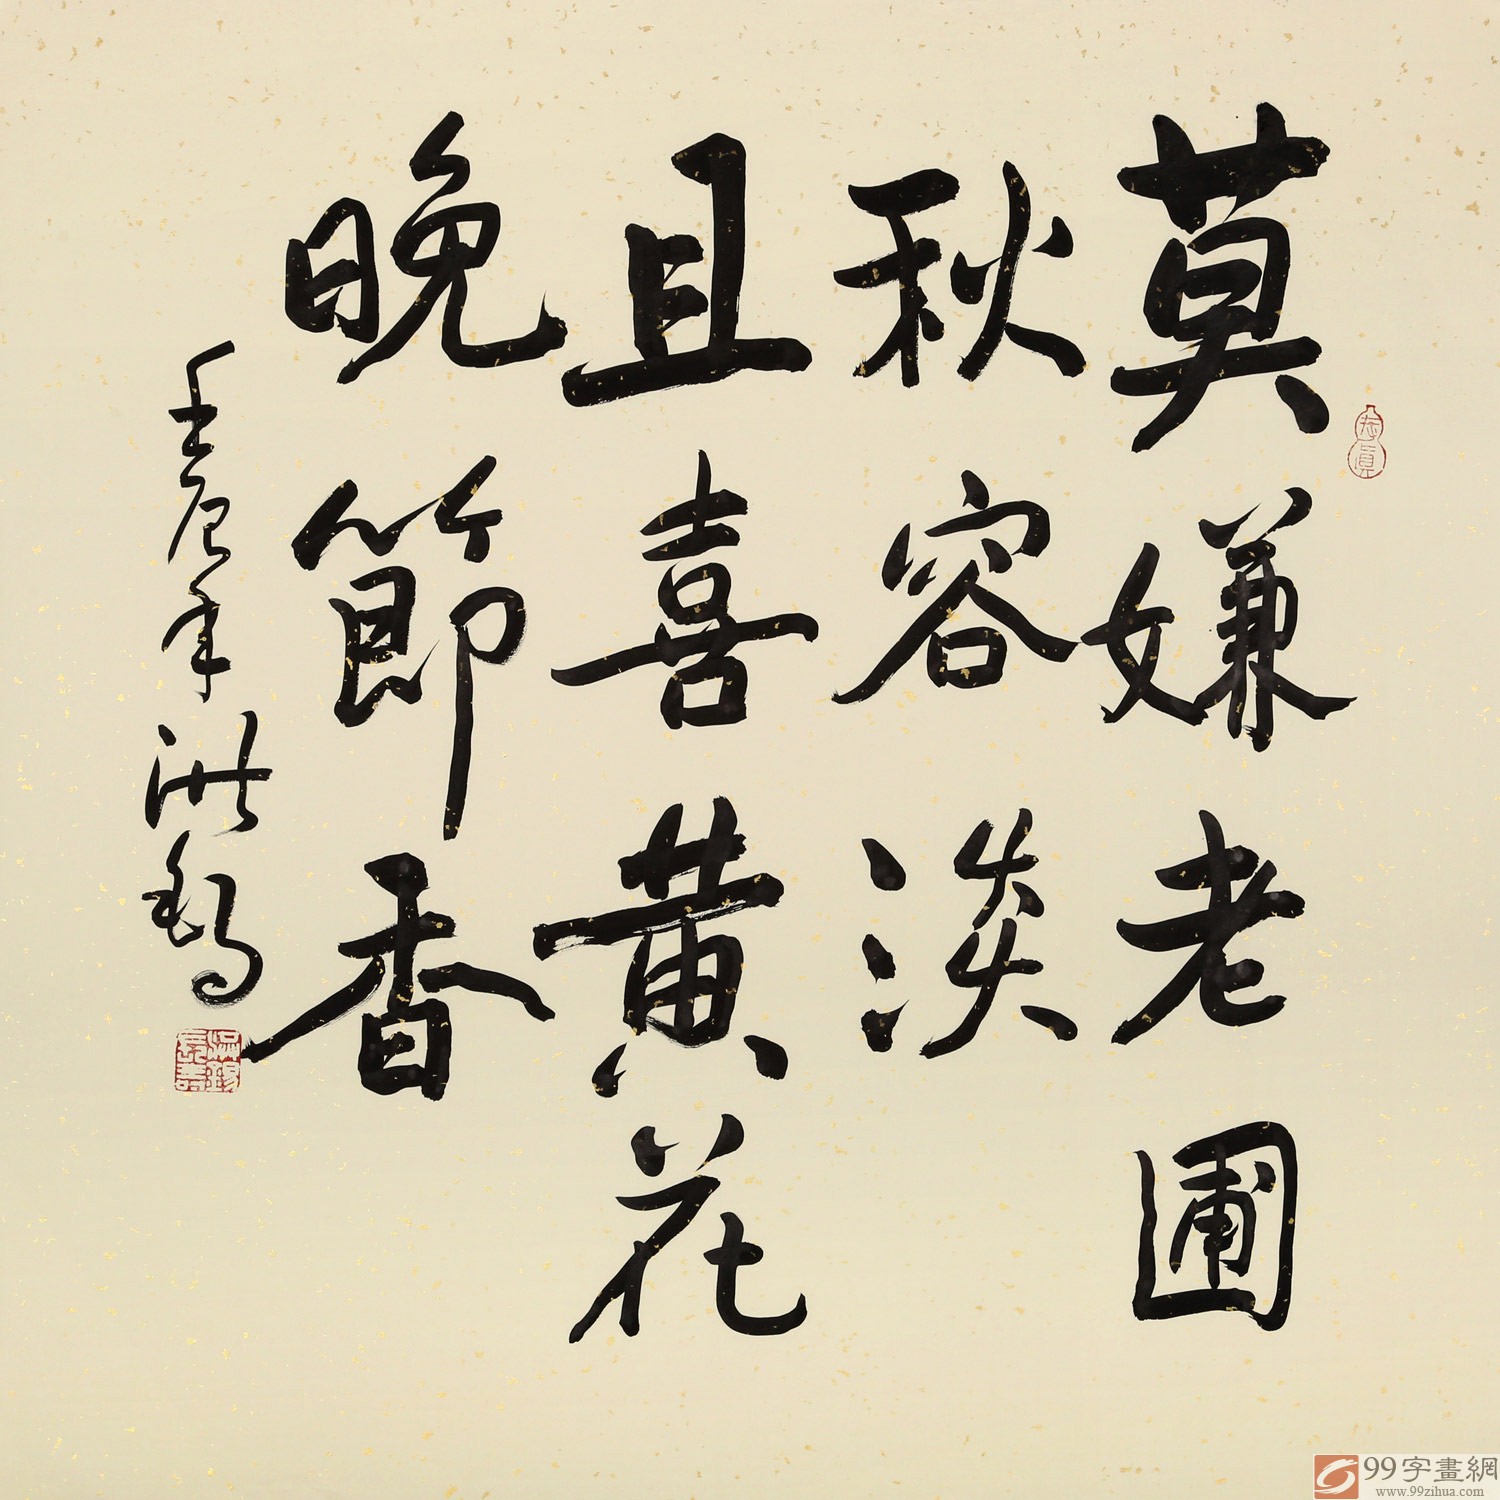 莫嫌老圃
秋容淡
且喜黄花
晚節香
壬辰年洪
99字畫網
www.99zihua.com